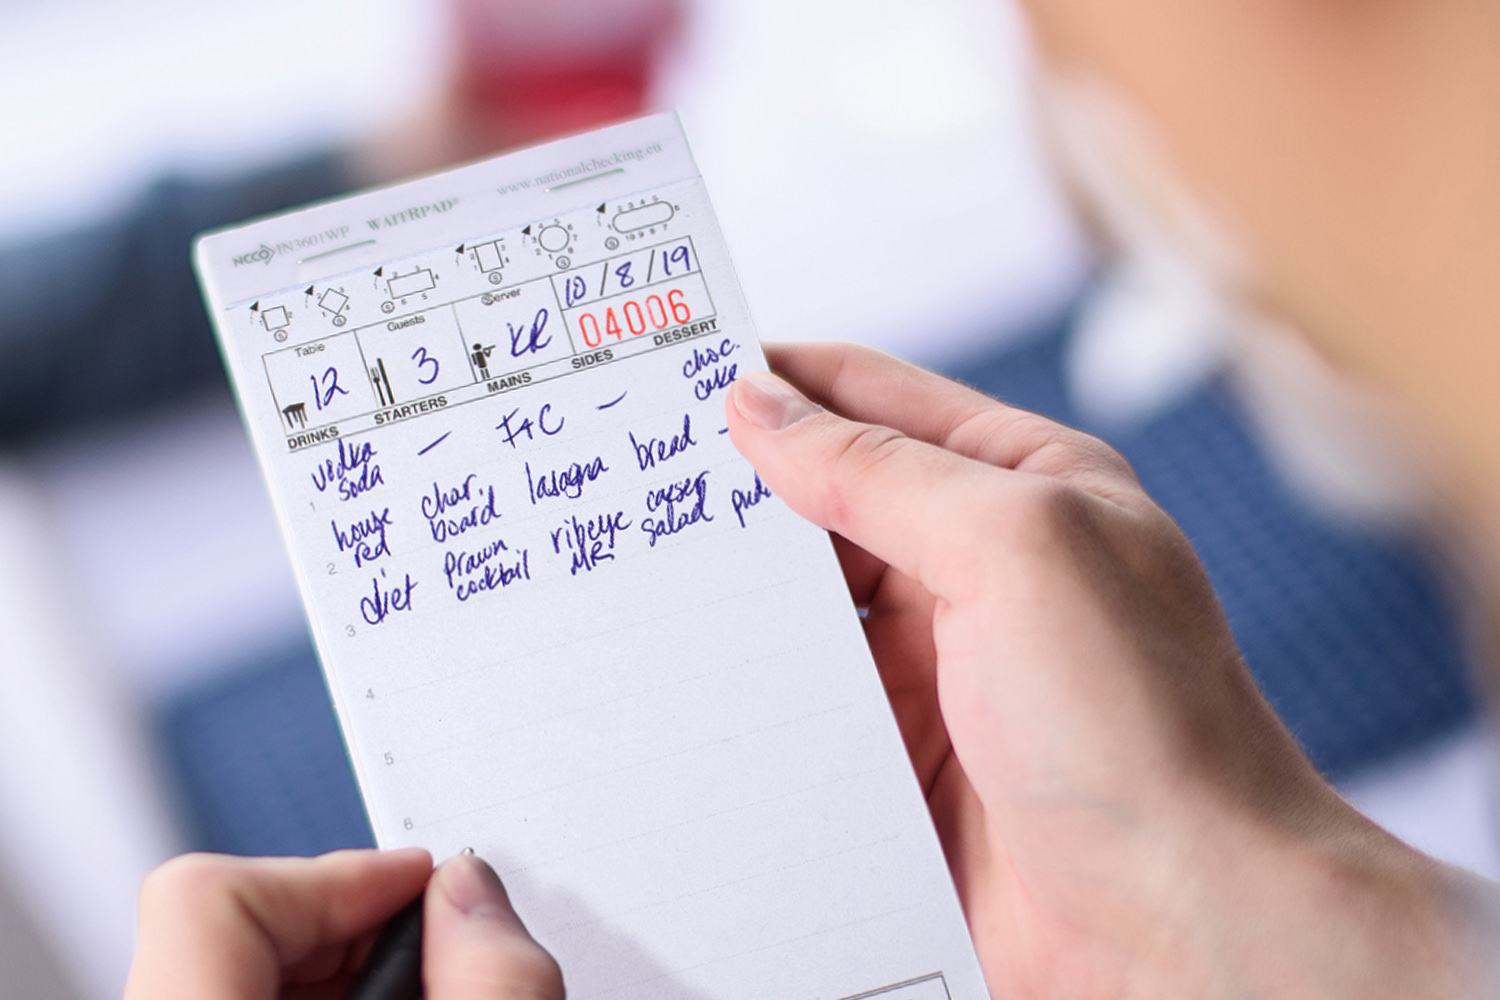 NCCO IN3601WP WAITRPAD® www.nationalchecking.eu
Table Guests Server 10/8/19
12 3 KR 04006
DRINKS STARTERS MAINS SIDES DESSERT
vodka soda — F+C — choc. cake
1
house red char. board lasagna bread –
2
diet prawn cocktail ribeye MR caeser salad
3
4
5
6